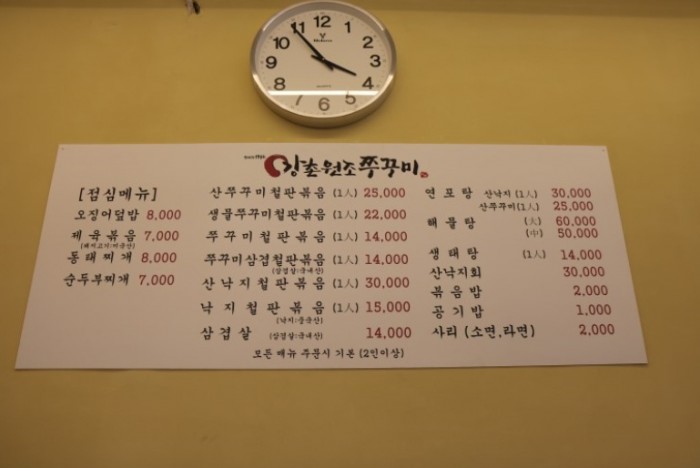 12
1
2
3
4
5
6
7
8
9
10
11
QUARTZ
장촌원조쭈꾸미
[점심메뉴]
오징어덮밥 8,000
제육볶음 7,000
(돼지고기:미국산)
동태찌개 8,000
순두부찌개 7,000
산쭈꾸미철판볶음 (1人) 25,000
생물쭈꾸미철판볶음 (1人) 22,000
쭈꾸미철판볶음 (1人) 14,000
쭈꾸미삼겹철판볶음 (1人) 14,000
(삼겹살:국내산)
산낙지철판볶음 (1人) 30,000
낙지철판볶음 (1人) 15,000
(낙지:중국산)
삼겹살 (삼겹살:국내산) 14,000
연포탕 산낙지 (1人) 30,000
산쭈꾸미(1人) 25,000
해물탕 (大) 60,000
(中) 50,000
생태탕 (1人) 14,000
산낙지회 30,000
볶음밥 2,000
공기밥 1,000
사리 (소면,라면) 2,000
모든 메뉴 주문시 기본 (2인이상)